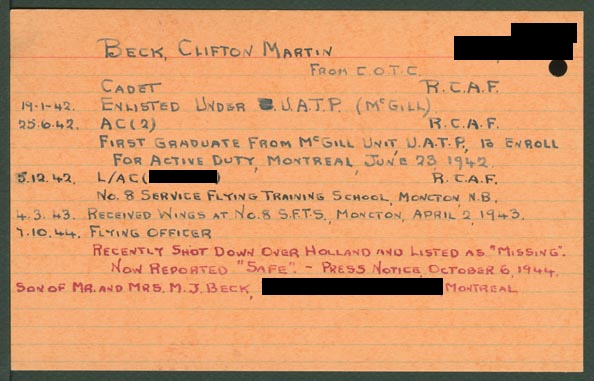 BECK, CLIFTON MARTIN
FROM C.O.T.C.
CADET R.C.A.F.
19-1-42. ENLISTED UNDER U.A.T.P. (MCGILL)
25.6.42. AC(2) R.C.A.F.
FIRST GRADUATE FROM MCGILL UNIT, U.A.T.P., TO ENROLL
FOR ACTIVE DUTY, MONTREAL, JUNE 23 1942.
5.12.42. L/AC( ) R.C.A.F.
NO. 8 SERVICE FLYING TRAINING SCHOOL, MONCTON N.B.
4.3.43. RECEIVED WINGS AT NO. 8 S.F.T.S, MONCTON, APRIL 2, 1943.
7.10.44. FLYING OFFICER
RECENTLY SHOT DOWN OVER HOLLAND AND LISTED AS "MISSING".
NOW REPORTED "SAFE". - PRESS NOTICE, OCTOBER 6, 1944.
SON OF MR. AND MRS. M. J. BECK, MONTREAL